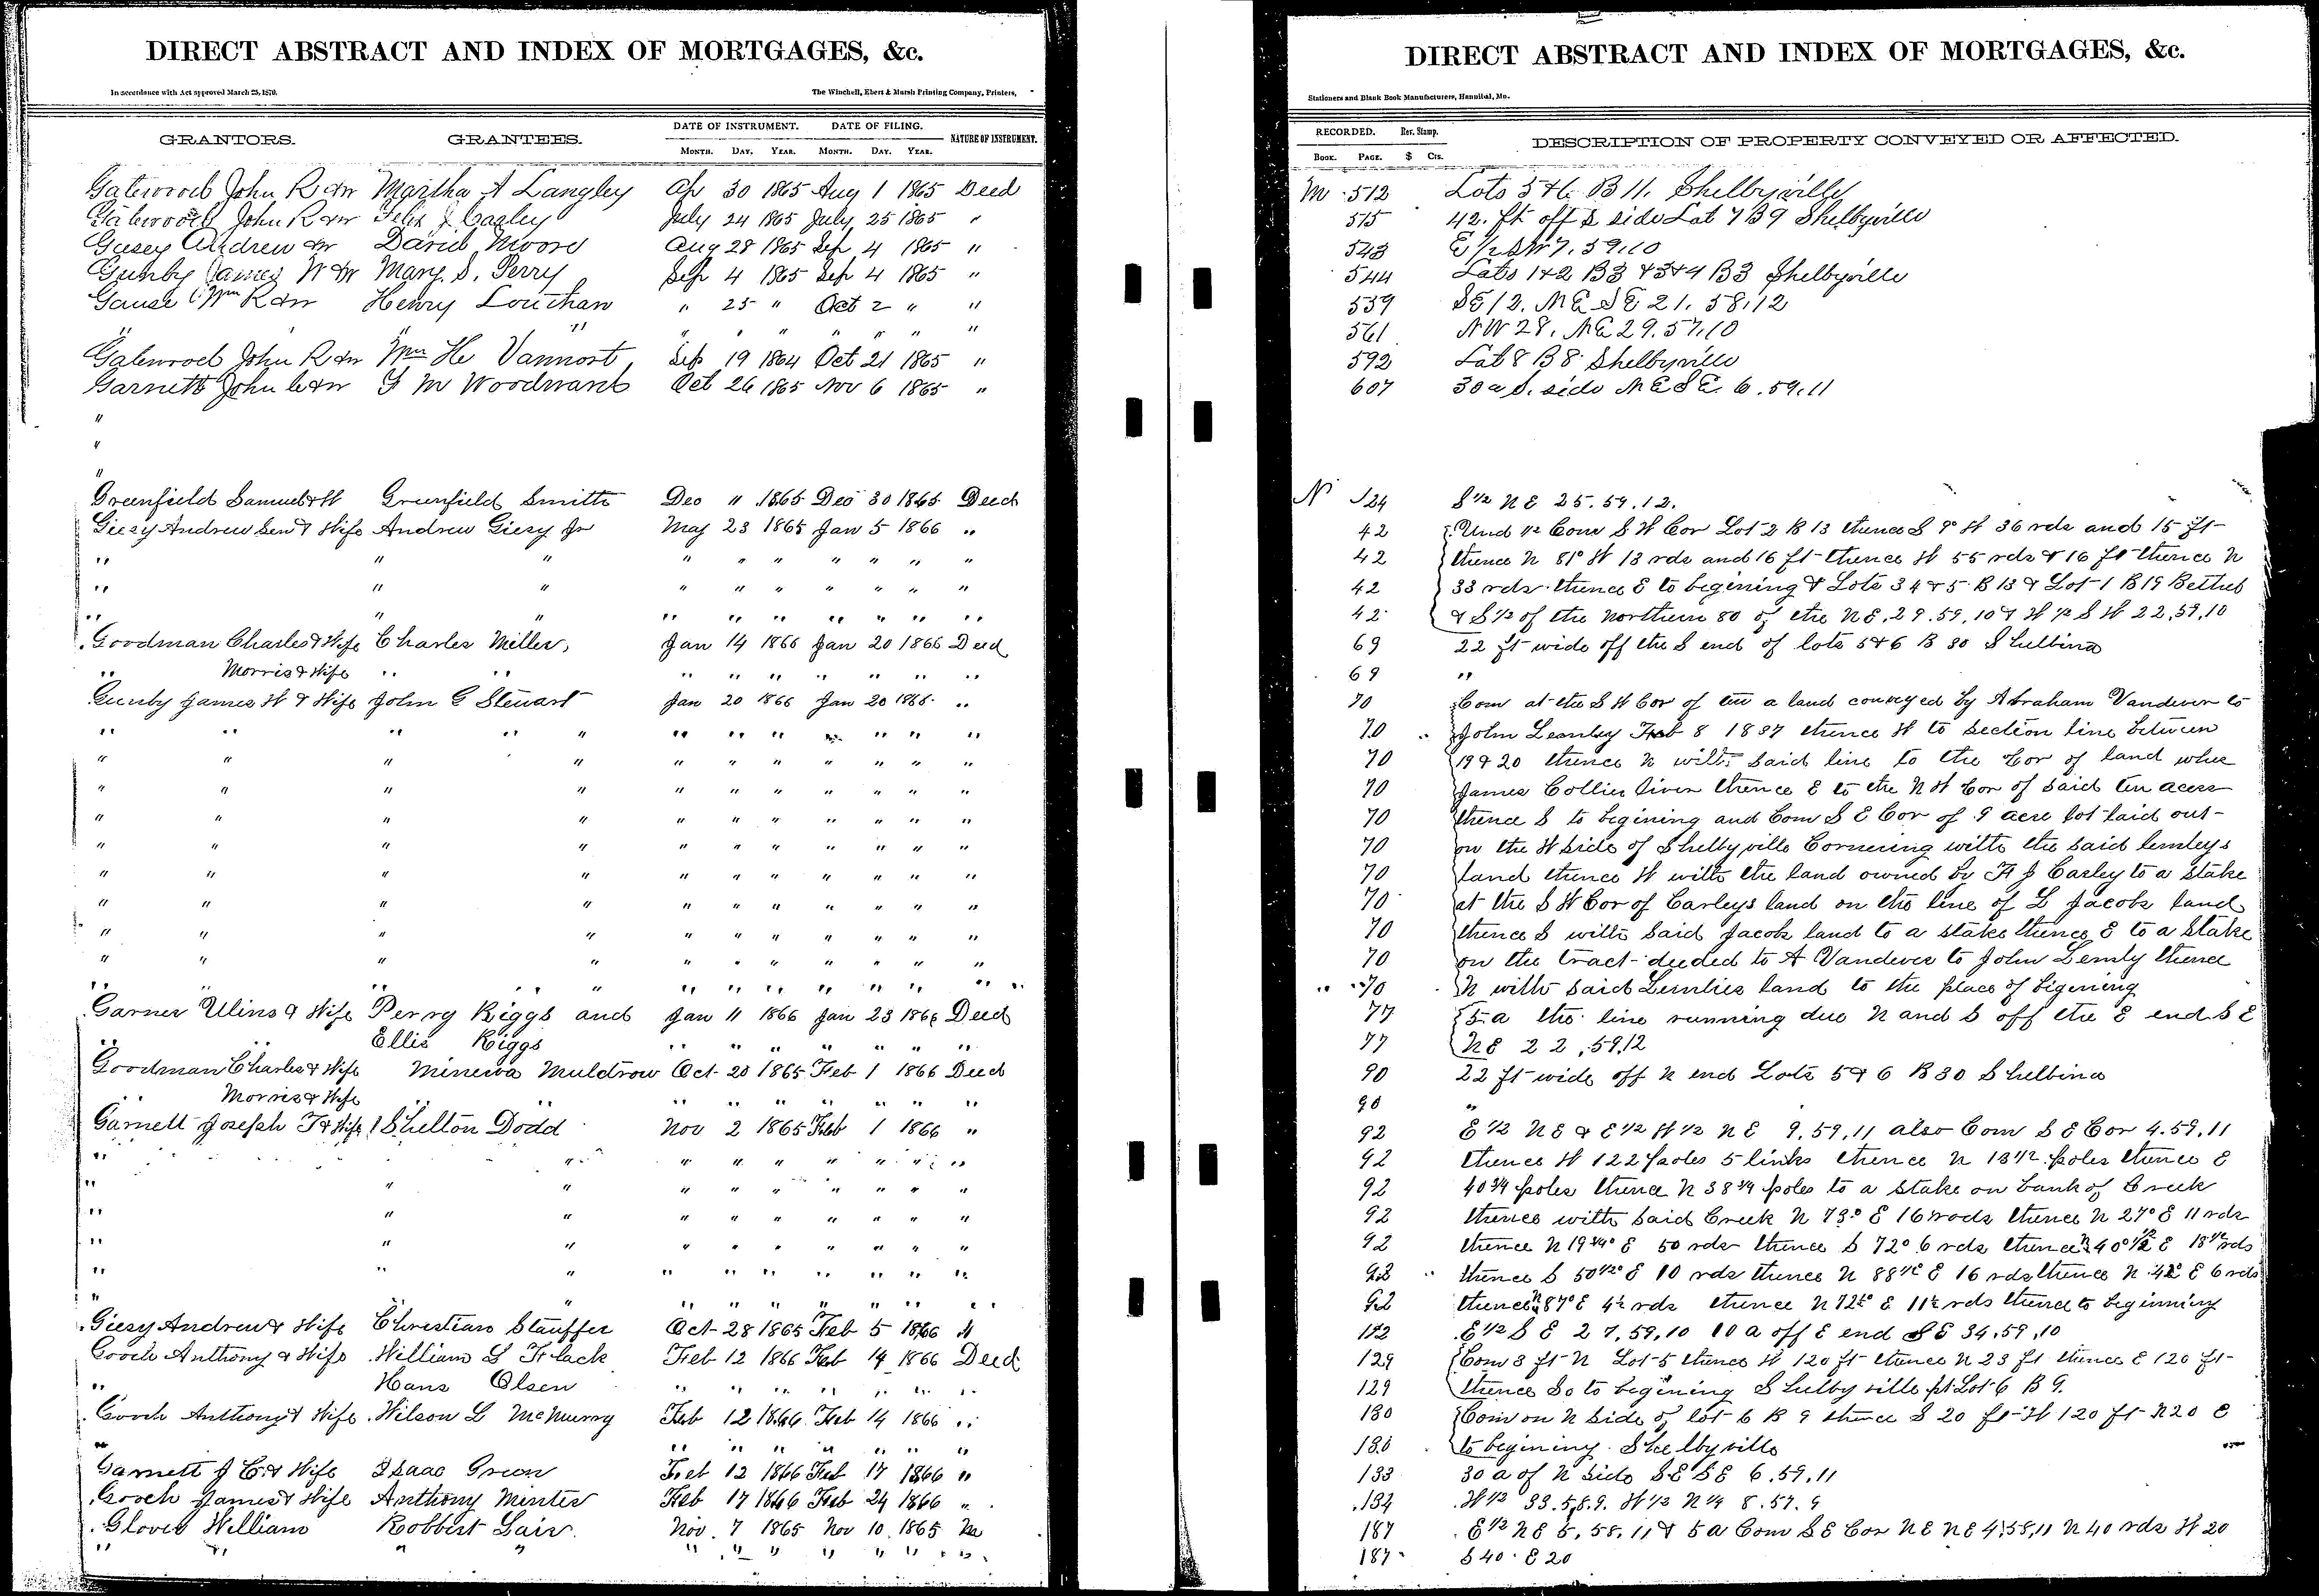 DIRECT ABSTRACT AND INDEX OF MORTGAGES, &c.
In accordance with Act approved March 25, 1870. The Winchell, Ebert & Marsh Printing Company, Printers,
GRANTORS. GRANTEES. DATE OF INSTRUMENT. DATE OF FILING. NATURE OF INSTRUMENT.
MONTH. DAY. YEAR. MONTH. DAY. YEAR.
Gatewood John R & w Martha A Langley Ap 30 1865 Aug 1 1865 Deed
Gatewood John R & w Felix J Carley July 24 1865 July 25 1865 "
Giesey Andrew & w David Moore Aug 28 1865 Sep 4 1865 "
Gunby James W & W Mary S. Perry Sep 4 1865 Sep 4 1865 "
Gause Wm R & w Henry Louthan " 25 " Oct 2 " "
" " " " " " " " "
Gatewood John R & w Wm H Vannort Sep 19 1864 Oct 21 1865 "
Garnett John & w G M Woodward Oct 26 1865 Nov 6 1865 "
"
"
"
Greenfield Samuel & W Greenfield Smith Dec 11 1865 Dec 30 1865 Deed
Giesy Andrew Sen & Wife Andrew Giesy Jr May 23 1865 Jan 5 1866 "
" " " " " " " " " "
" " " " " " " " " "
" " " " " " " " " "
Goodman Charles & Wife Charles Miller, Jan 14 1866 Jan 20 1866 Deed
" Morris & Wife " " " " " " " " "
Gunby James W & Wife John G Stewart Jan 20 1866 Jan 20 1866 "
" " " " " " " " " " " "
" " " " " " " " " " "
" " " " " " " " " " "
" " " " " " " " " " "
" " " " " " " " " " "
" " " " " " " " " " "
" " " " " " " " " " "
" " " " " " " " " " "
" " " " " " " " " " "
" " " " " " " " " " " "
Garner Ulins & Wife Perry Riggs and Jan 11 1866 Jan 23 1866 Deed
" Ellis Riggs " " " " " " "
Goodman Charles & Wife Minerva Muldrow Oct 20 1865 Feb 1 1866 Deed
" Morris & Wife " " " " " " " "
Garnett Joseph T & Wife Shelton Dodd Nov 2 1865 Feb 1 1866 "
" " " " " " " " "
" " " " " " " " " "
" " " " " " " " " "
" " " " " " " " " "
" " " " " " " " " "
" " " " " " " " "
Giesy Andrew & Wife Christian Stauffer Oct 28 1865 Feb 5 1866 "
Gooch Anthony & Wife William L Flack Feb 12 1866 Feb 14 1866 Deed
" Hans Olsen " " " " " " "
Gooch Anthony & Wife Wilson L McMurry Feb 12 1866 Feb 14 1866 "
" " " " " " " "
Garnett J C & Wife Isaac Green Feb 12 1866 Feb 17 1866 "
Gooch James & Wife Anthony Minter Feb 17 1866 Feb 24 1866 "
Glover William Robbert Lair Nov 7 1865 Nov 10 1865
" " " " " " " " " " "
DIRECT ABSTRACT AND INDEX OF MORTGAGES, &c.
Stationers and Blank Book Manufacturers, Hannibal, Mo.
RECORDED. Rev. Stamp. DESCRIPTION OF PROPERTY CONVEYED OR AFFECTED.
BOOK. PAGE. $ Cts.
M 512 Lots 5 & 6 B 11. Shelbyville
515 42. ft off S side Lot 7 B 9 Shelbyville
543 E 1/2 SW 7. 59.10
544 Lots 1 & 2 B 3 & 3 & 4 B 3 Shelbyville
559 SE 12. NE SE 21. 58.12
561 NW 28. NE 29. 57.10
592 Lot 8 B 8 Shelbyville
607 30 a S. side NE SE. 6. 59.11
N 24 S 1/2 NE 25. 59. 12.
42 Und 1/2 Com S W Cor Lot 2 B 13 thence S 9° W 36 rds and 15 ft
42 thence N 81° W 13 rds and 16 ft thence W 55 rds & 16 ft thence N
42 33 rds thence E to begining & Lots 3 4 & 5 B 13 & Lot 1 B 19 Bethel
42 & S 1/2 of the northern 80 of the NE, 29. 59, 10 & W 1/2 S W 22, 59, 10
69 22 ft wide off the S end of lots 5 & 6 B 30 Shelbina
69 "
70 Com at the S W Cor of ten a land conveyed by Abraham Vandever to
70 John Lemley Feb 8 1837 thence W to section line between
70 19 & 20 thence N with said line to the Cor of land where
70 James Collier lives thence E to the N W Cor of said ten acers
70 thence S to begining and Com S E Cor of 9 acre lot laid out
70 on the W side of Shelbyville Cornering with the said lemleys
70 land thence W with the land owned by F J Carley to a stake
70 at the S W Cor of Carleys land on the line of L Jacobs land
70 thence S with said Jacobs land to a stake thence E to a stake
70 on the tract deeded to A Vandever to John Lemly thence
" 70 N with said Lemlies land to the place of bigening
77 5 a the line running due N and S off the E end S E
77 NE 22, 59,12
90 22 ft wide off N end Lots 5 & 6 B 30 Shelbina
90 "
92 E 1/2 NE & E 1/2 W 1/2 NE 9. 59. 11 also Com S E Cor 4. 59. 11
92 thence W 122 poles 5 links thence N 13 1/2 poles thence E
92 40 3/4 poles thence N 38 3/4 poles to a stake on bank of Creek
92 thence with said Creek N 73° E 16 rods thence N 27° E 11 rds
92 thence N 19 3/4° E 50 rds thence S 72° 6 rds thence N 40° 1/2 E 18 1/2 rds
92 " thence S 50 1/2° E 10 rds thence N 88 1/2 E 16 rds thence N 42° E 6 rds
92 thence N 87° E 4 1/2 rds thence N 72 1/2° E 11 1/2 rds thence to beginning
112 E 1/2 S E 27, 59, 10 10 a off E end SE 34, 59, 10
129 Com 3 ft N Lot 5 thence W 120 ft thence N 23 ft thence E 120 ft
129 thence So to begining Shelbyville pt Lot 6 B 9.
130 Com on N side of lot 6 B 9 thence S 20 ft W 120 ft N 20 E
130 to begining. Shelbyville
133 30 a of N side SE SE 6. 59. 11
134 W 1/2 33. 58. 9. W 1/2 N 1/4 8. 57. 9
187 E 1/2 NE 5, 58, 11 & 5 a Com SE Cor NE NE 4, 58, 11 N 40 rds W 20
187 S 40 E 20